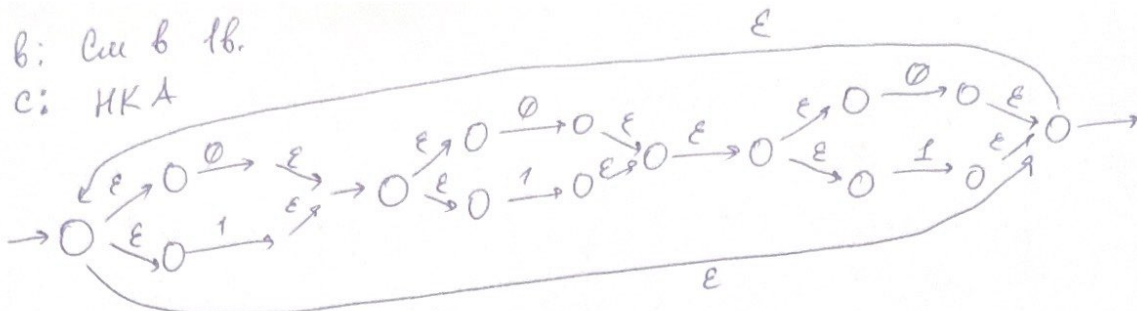 в: См в 1в.
ε
с: НКА
ε 0 ε
ε 0 ε
ε 0 ε
ε
ε 1 ε
ε 1 ε
ε 1 ε
ε